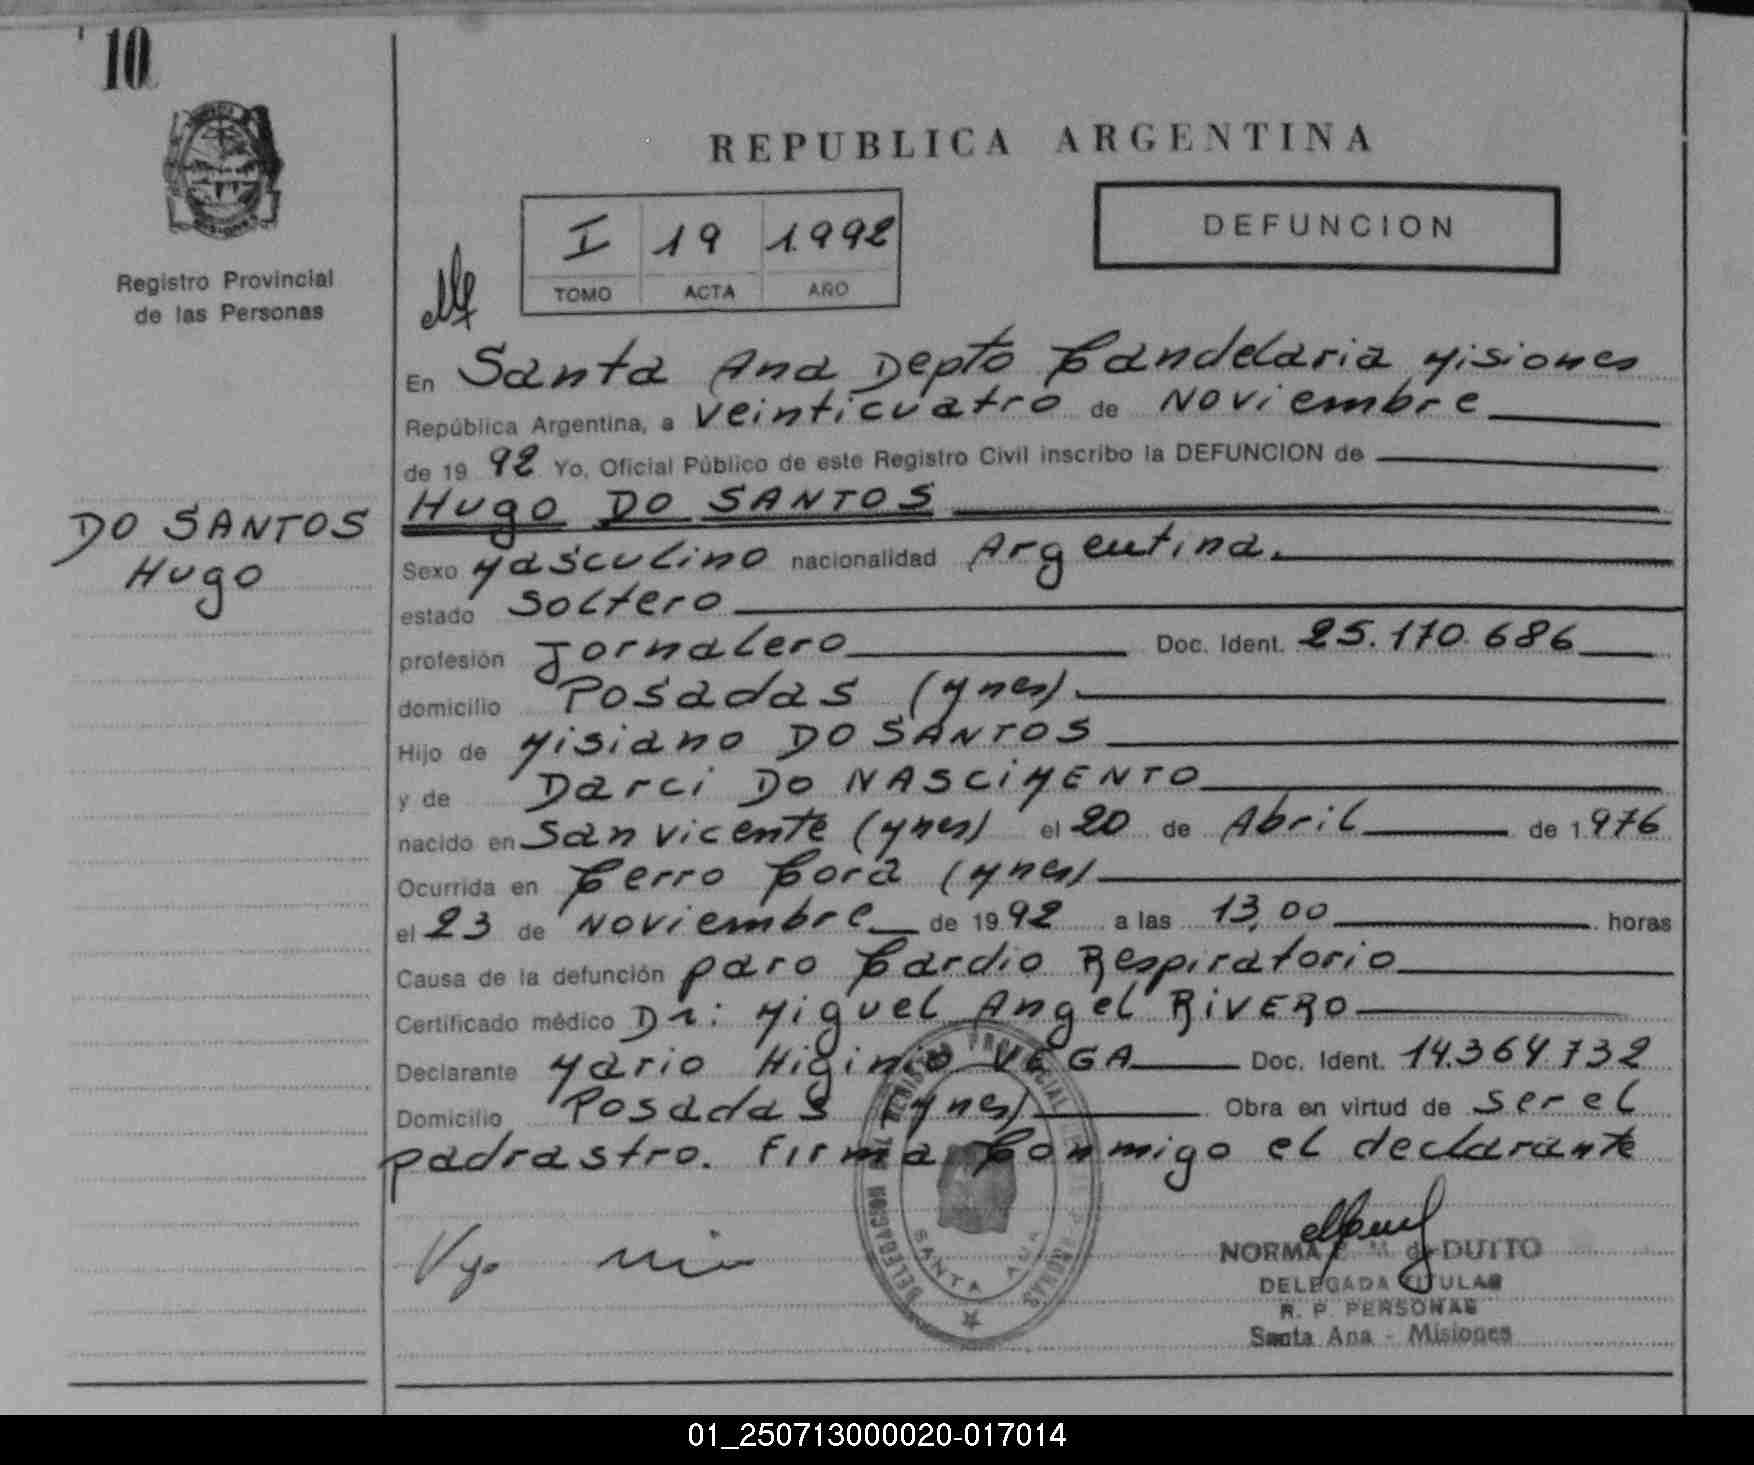 10
REPUBLICA ARGENTINA
I 19 1.992
TOMO ACTA AÑO
DEFUNCION
Registro Provincial
de las Personas
En Santa Ana Depto Candelaria Misiones
República Argentina, a veinticuatro de Noviembre
de 19 92 Yo, Oficial Público de este Registro Civil inscribo la DEFUNCION de
Hugo DO SANTOS
DO SANTOS
Hugo
Sexo Masculino nacionalidad Argentina.
estado Soltero
profesión Jornalero Doc. Ident. 25.170.686
domicilio Posadas (Mnes).
Hijo de Misiano DO SANTOS
y de Darci DO NASCIMENTO
nacido en San Vicente (Mnes) el 20 de Abril de 1.976
Ocurrida en Cerro Corá (Mnes)
el 23 de Noviembre de 19 92 a las 13,00 horas
Causa de la defunción paro Cardio Respiratorio
Certificado médico Dr: Miguel Angel RIVERO
Declarante Mario Higinio VEGA Doc. Ident. 14.364.732
Domicilio Posadas (Mnes) Obra en virtud de ser el
padrastro. Firma Conmigo el declarante
DELEGACION REGISTRO PROVINCIAL DE LAS PERSONAS
SANTA ANA
NORMA M. de DUTTO
DELEGADA TITULAR
R. P. PERSONAS
Santa Ana - Misiones
01_250713000020-017014